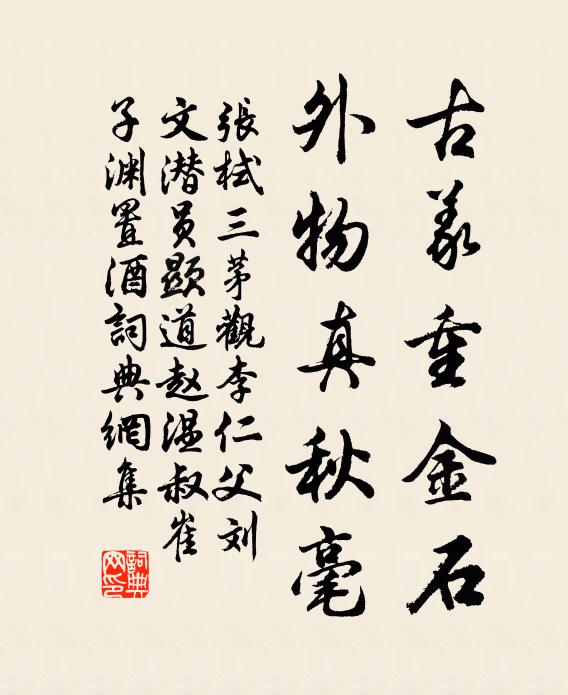 古義重金石
外物真秋毫
張栻三茅觀李仁父刘
文潜员顯道赵温叔崔
子渊置酒詞典網集
詞典网印